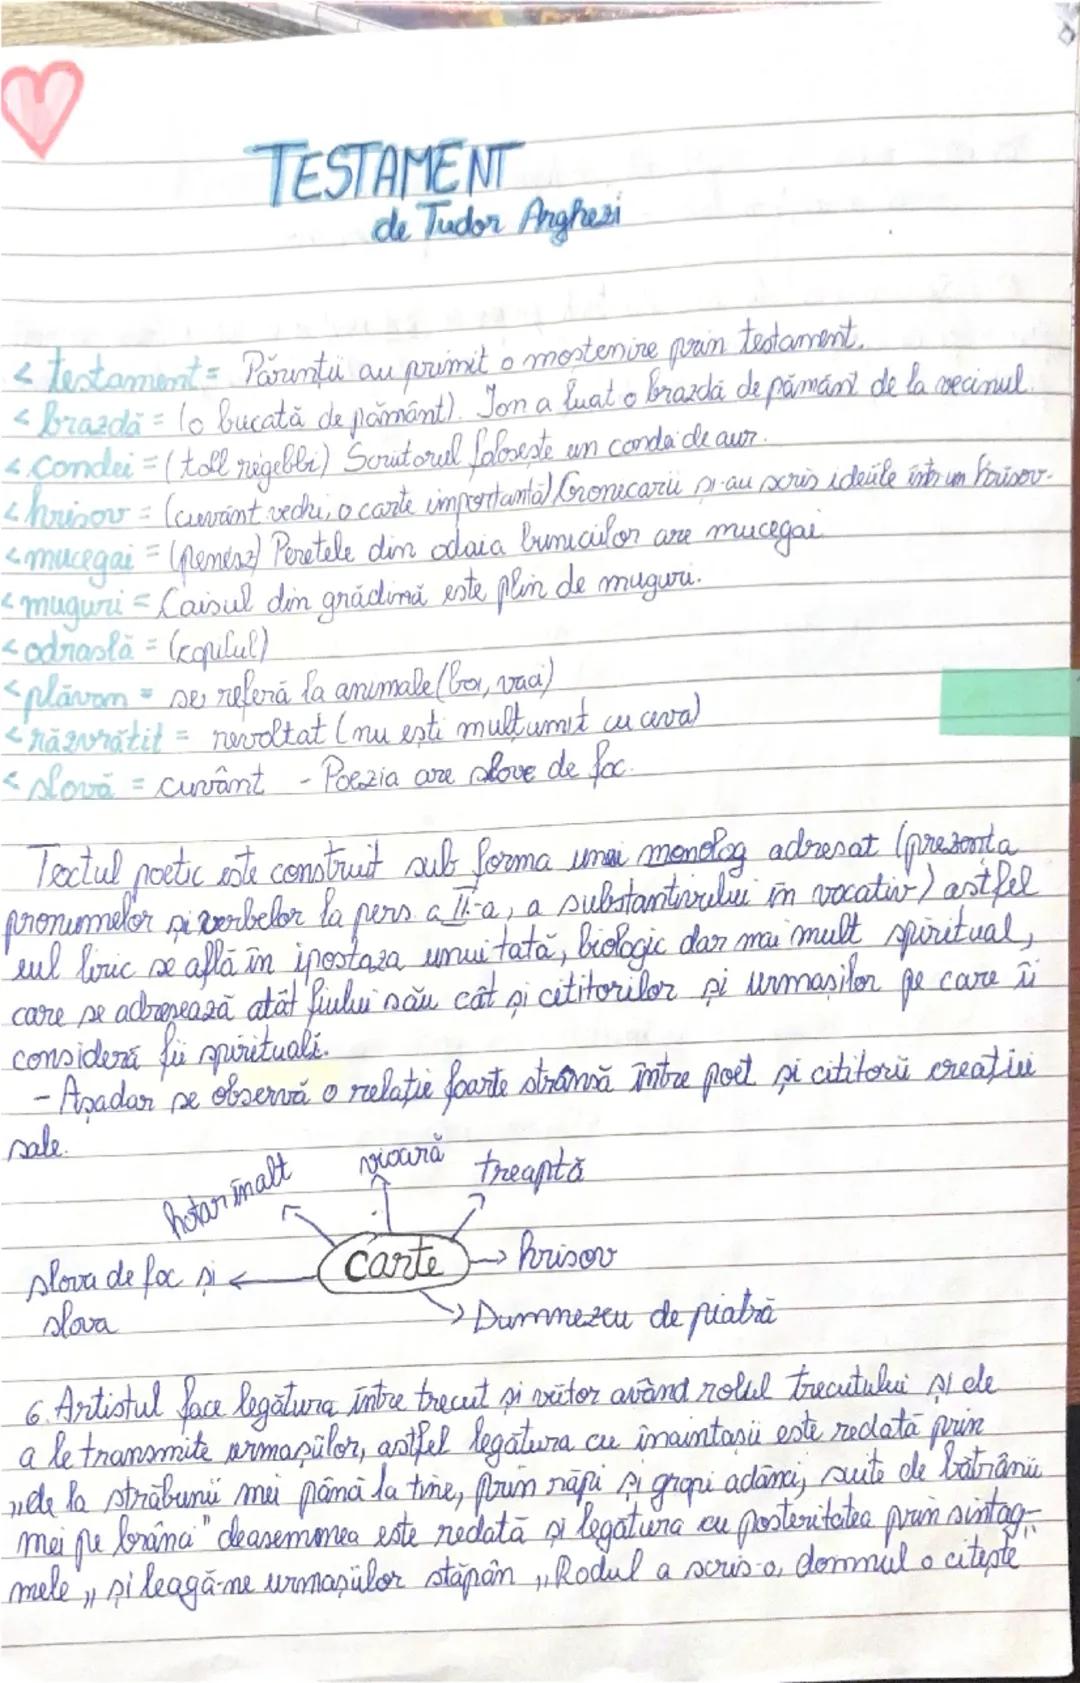 TESTAMENT
de Tudor Arghezi
< testament = Părinții au primit o moștenire prin testament.
< brazdă = (o bucată de pământ). Ion a luat o brazdă de pământ de la vecinul.
< condei = (toll régebbi) Scriitorul folosește un condei de aur.
< hrisov = (cuvânt vechi, o carte importantă) Cronicarii și-au scris ideiile într-un hrisov.
< mucegai = (penész) Peretele din odaia bunicilor are mucegai.
< muguri = Caisul din grădină este plin de muguri.
< odraslă = (copilul)
< plăvan = se referă la animale (boi, vaci)
< răzvrătit = revoltat (nu ești mulțumit cu ceva)
< slovă = cuvânt - Poezia are slove de foc.
Textul poetic este construit sub forma unui monolog adresat (prezența
pronumelor și verbelor la pers. a II-a, a substantivului în vocativ) astfel
eul liric se află în ipostaza unui tată, biologic dar mai mult spiritual,
care se adresează atât fiului său cât și cititorilor și urmașilor pe care îi
consideră fii spirituali.
- Așadar se observă o relație foarte strânsă între poet și cititorii creației
sale.
hotar înalt
vioară
treaptă
carte
hrisov
slova de foc și
slova
Dumnezeu de piatră
6. Artistul face legătura între trecut și viitor având rolul trecutului și de
a le transmite urmașiilor, astfel legătura cu înaintașii este redată prin
„de la străbunii mei până la tine, prin râpi și gropi adânci, suite de bătrânii
mei pe brânci" deasemenea este redată și legătura cu posteritatea prin sintag-
mele „și leagă-ne urmașiilor stăpân „Rodul a scris-o, domnul o citește"